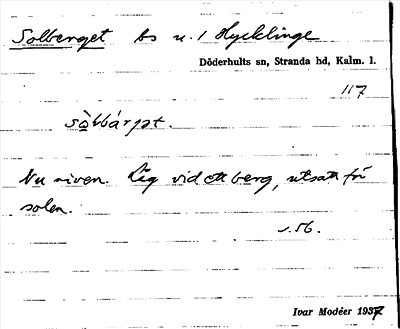 Solberget bs u. / Hycklinge
Döderhults sn, Stranda hd, Kalm. l.
117
sòlbárjət.
Nu riven. Låg vid ett berg, utsatt för
solen.
s. 56.
Ivar Modéer 1937